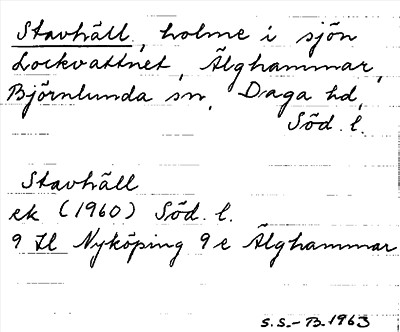 Stavhäll, holme i sjön
Lockvattnet, Älghammar,
Björnlunda sn, Daga hd,
Söd. l.
Stavhäll
ek (1960) Söd. l.
9 H Nyköping 9 e Älghammar
S.S.-B. 1963